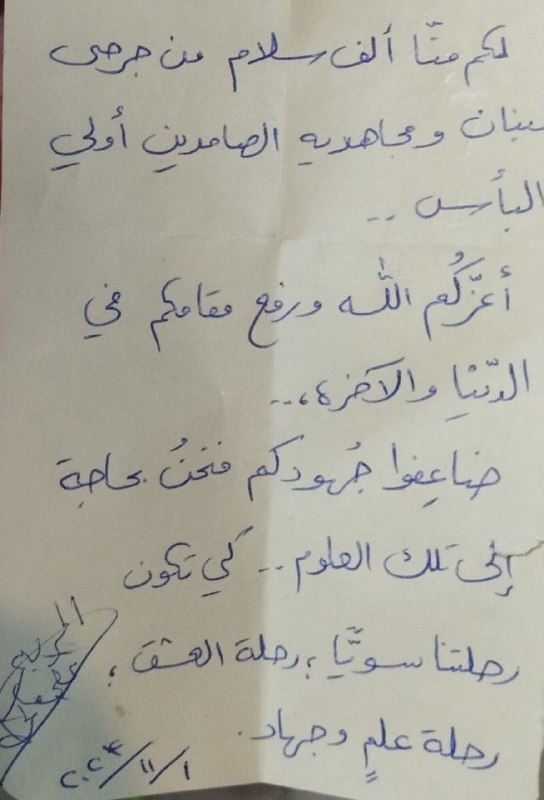 لكم منّا ألف سلام من جرحى
لبنان ومجاهديه الصامدين أولي
البأس ..
أعزّكُم اللّٰه ورفع مقامكم في
الدّنيا والآخرة،...
ضاعِفوا جُهودكم فنحنُ بحاجة
إلى تلك العلوم .. كي تكون
رحلتنا سويًّا ؛ رحلة العشق ؛
رحلة علمٍ وجهاد.